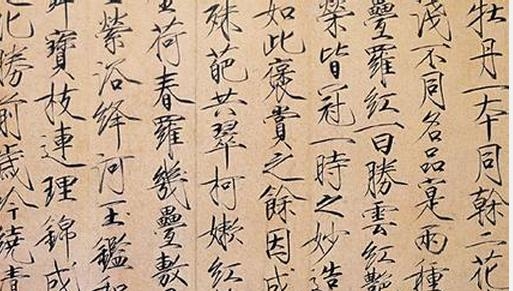 牡丹一本同榦二花
淺不同名品寔兩種
疊羅紅一曰勝雲紅艷
榮皆冠一時之妙造
如此褒賞之餘因成
殊葩共翠柯嫩紅
荷春羅幾疊敷
縈浴絳河玉鑑和
寶枝連理錦成
化勝前歲吟繞清